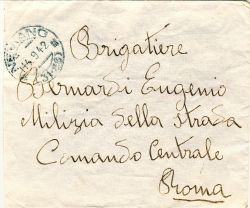 Brigatiere
Bernardi Eugenio
Milizia della strada
Comando Centrale
Roma